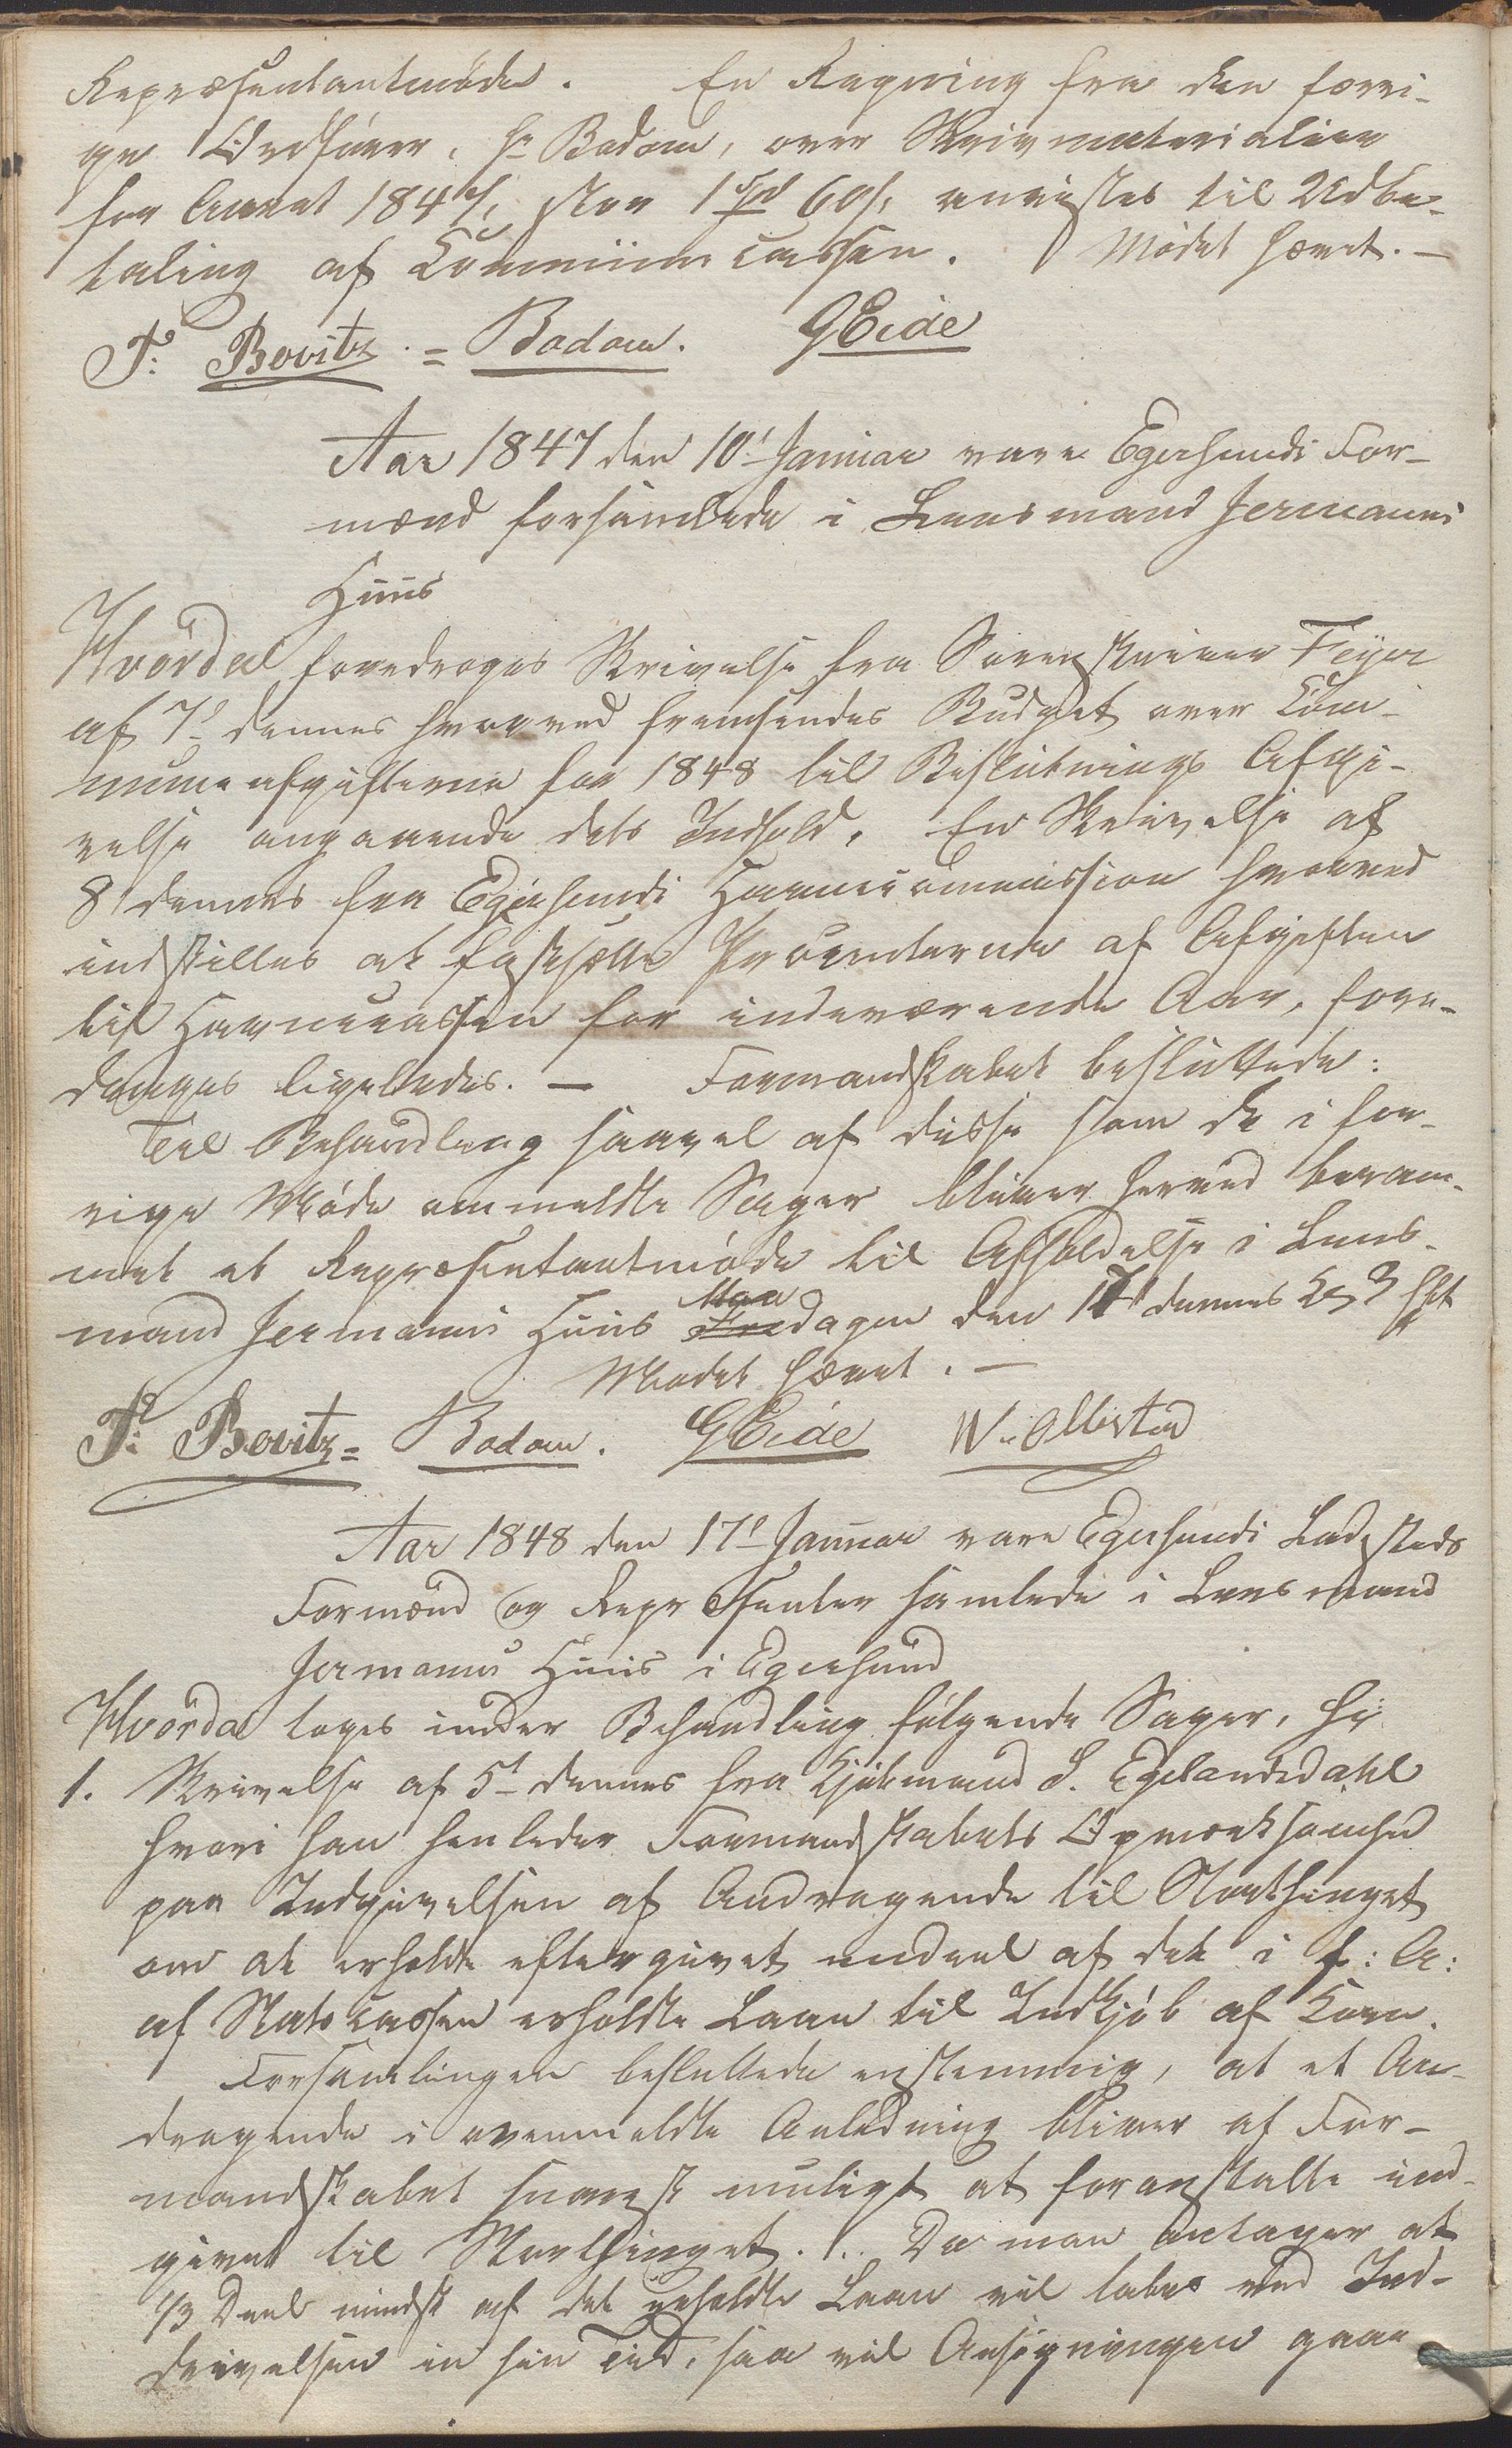 Repræsentantmøde. En Regning fra den forri-
ge Ordfører, Hr Bodom, over Skrivmaterialier
for Aaret 1847, stor 1 Spd 60 s, anvistes til Udbe-
taling af Communecassen. Mødet hævet. —
T: Bovitz. = Bodom. GEide
Aar 1847 den 10' Januar vare Egersunds For-
mænd forsamlede i Lensmand Jermanns
Huus
Hvorda foredroges Skrivelse fra Sorenskriver Feyer
af 7d dennes hvorved fremsendes Budget over Com-
muneafgifterne for 1848 til Beslutnings Afgi-
velse angaaende dets Indhold. En Skrivelse af
8' dennes fra Egersunds Havnecommission hvorved
indstilles at fastsætte Procenterne af Afgiften
til Havnecassen for indeværende Aar, fore-
droges ligeledes. — Formandskabet besluttede:
Til Behandling saavel af disse som de i for-
rige Møde anmeldte Sager bliver herved beram-
met et Repræsentantmøde til Afholdelse i Lens-
mand Jermanns Huus Mandagen den 17' dennes Kl 3 Eft
Mødet hævet. —
T: Bovitz = Bodom. GEide W. Ollestad
Aar 1848 den 17' Januar vare Egersunds Ladesteds
Formænd og Repræsenter samlede i Lensmand
Jermanns Huus i Egersund
Hvorda toges under Behandling følgende Sager,
1. Skrivelse af 5' dennes fra Kjøbmand S. Egelandsdahl
hvori han henleder Formandskabets Opmærksomhed
paa Indgivelsen af Andragende til Storthinget
om at erholde eftergivet endeel af det i f: A:
af Statscassen erholdte Laan til Indkjøb af Korn.
Forsamlingen besluttede enstemmig, at et An-
dragende i ovenmeldte Anledning bliver af For-
mandskabet snarest muligt at foranstalte ind-
givet til Storthinget. Da man antager at
1/3 Deel mindst af det erholdte Laan vil tabes ved Ind-
drivelsen in sin Tid, saa vil Ansøgningen gaae